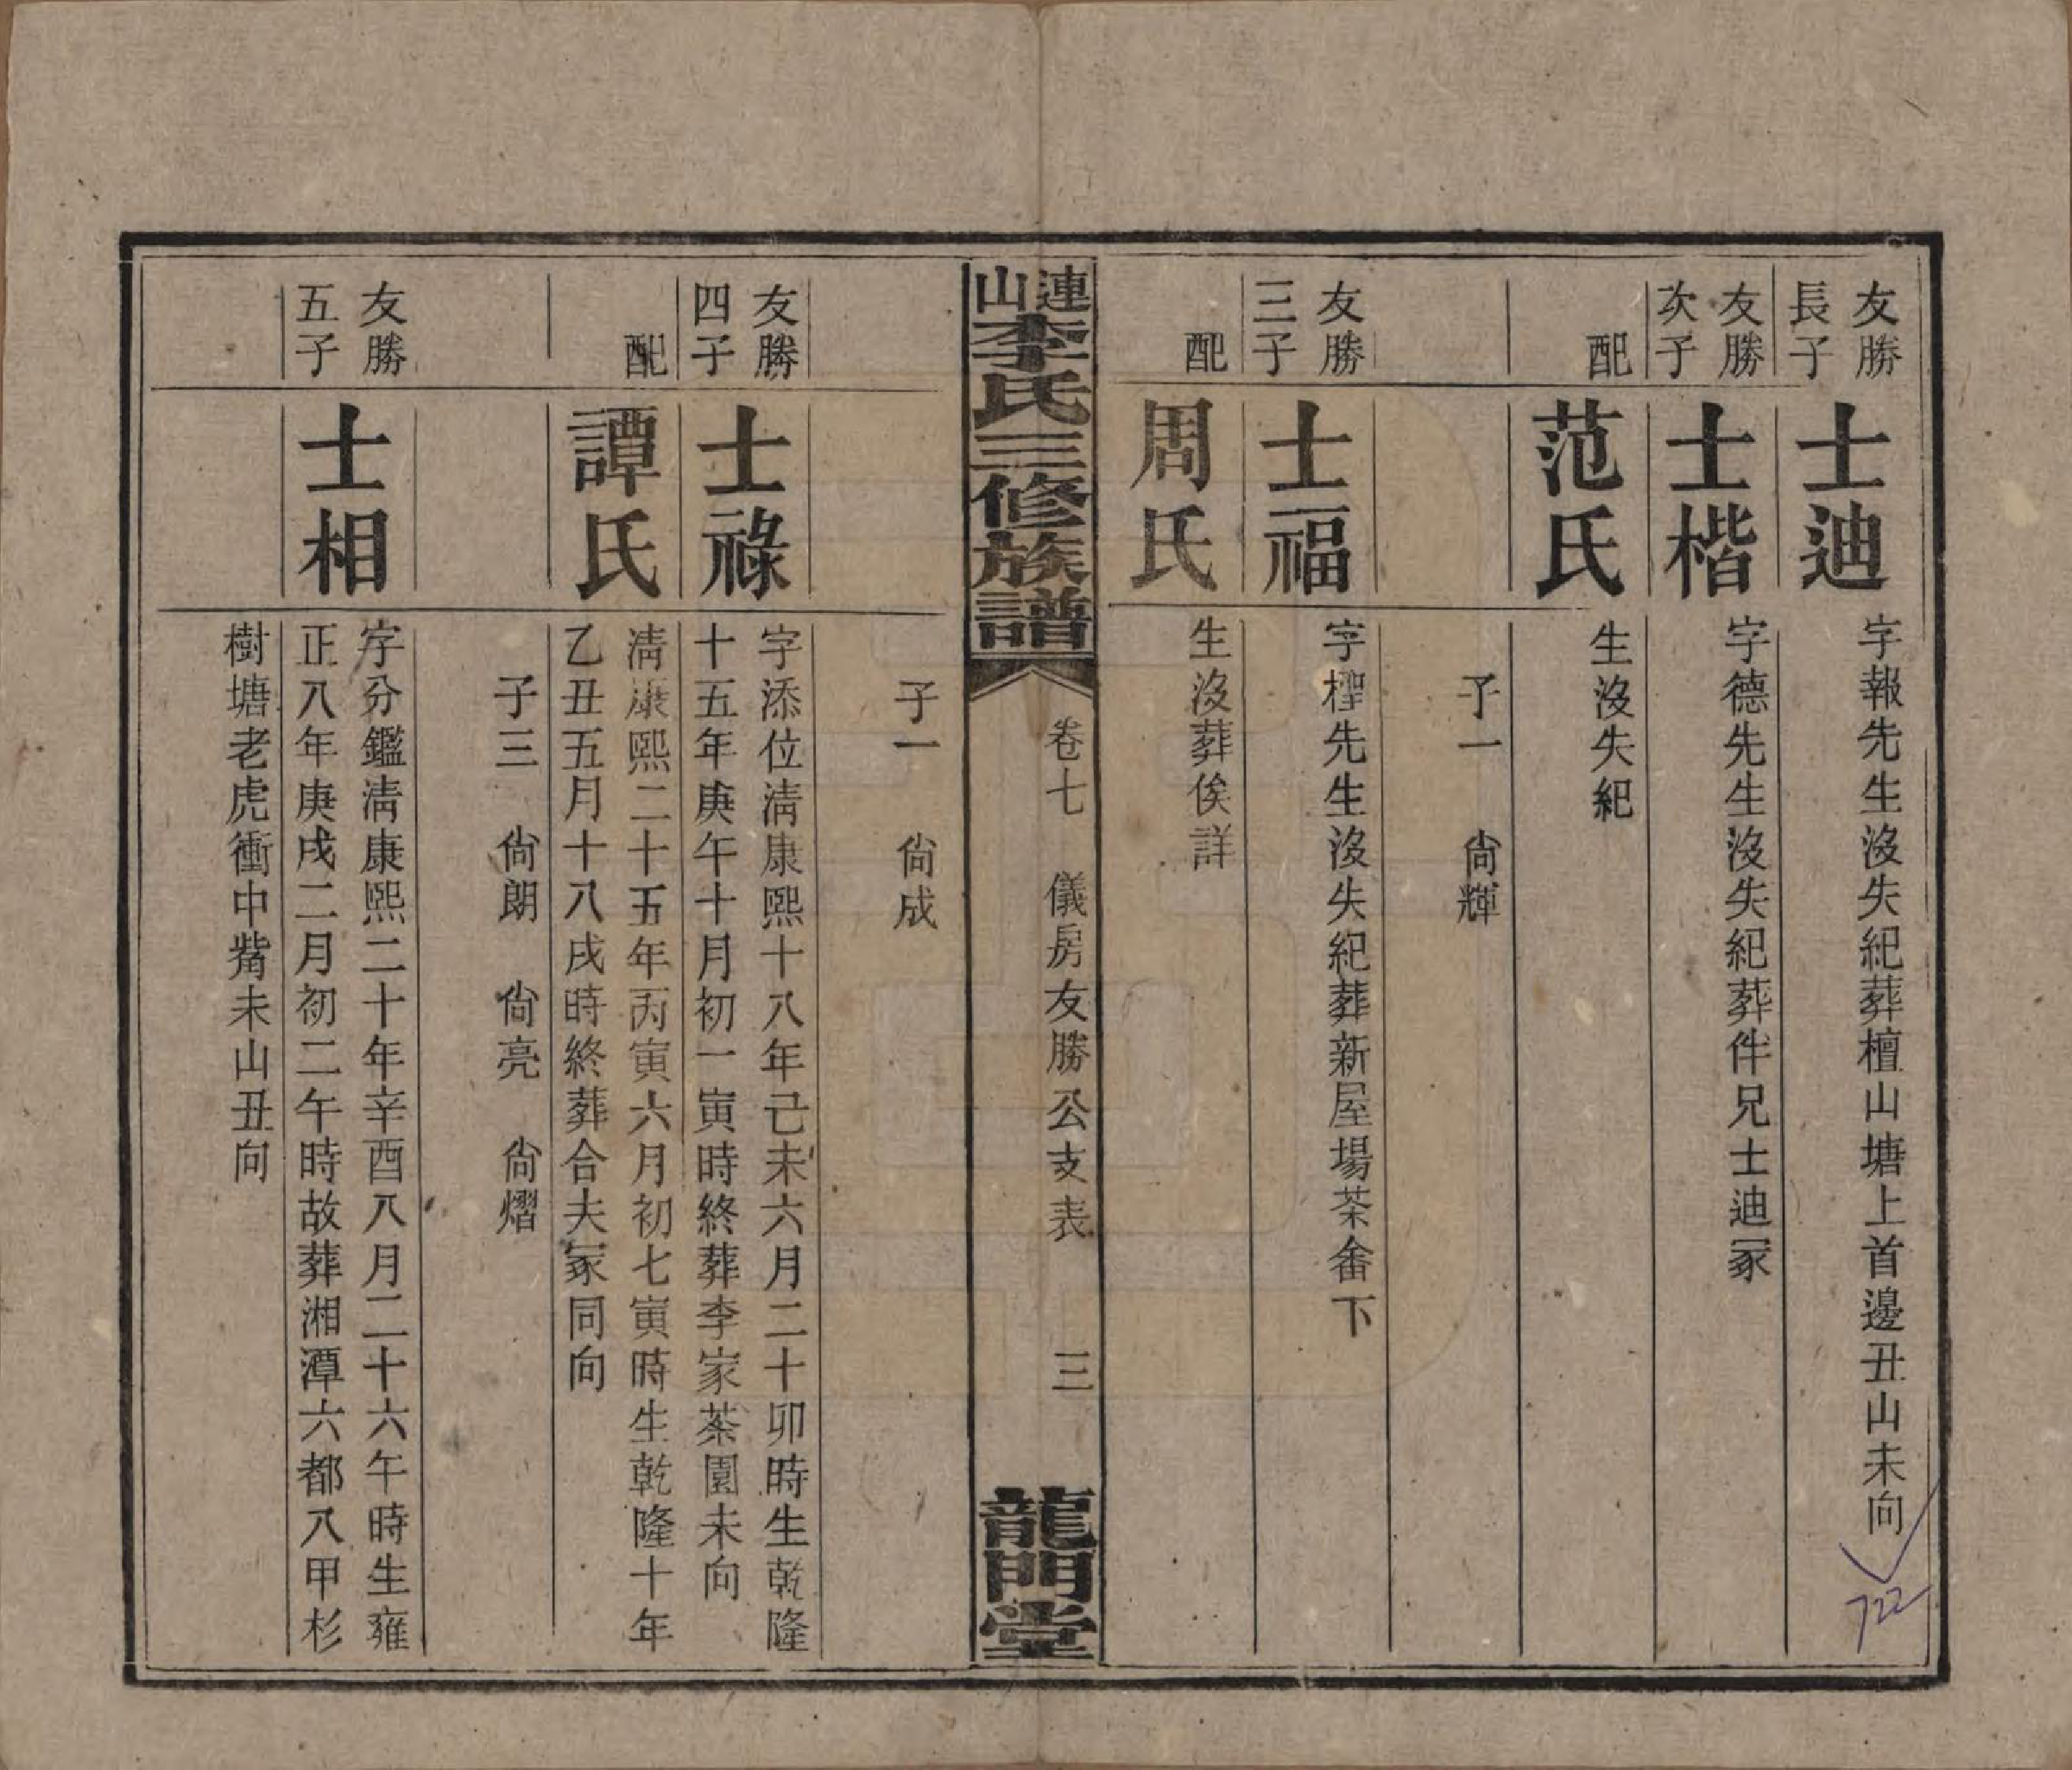 友勝
長子
士迪
字報先生沒失紀葬檀山塘上首邊丑山未向
友勝
次子
士楷
字德先生沒失紀葬伴兄士迪冢
配
范氏
生沒失紀
子一　尙輝
友勝
三子
士福
字檉先生沒失紀葬新屋場茶畬下
配
周氏
生沒葬俟詳
連山李氏三修族譜
卷七　儀房友勝公支表　三
龍門堂
子一　尙成
友勝
四子
士祿
字添位淸康熙十八年己未六月二十卯時生乾隆
十五年庚午十月初一寅時終葬李家茶園未向
配
譚氏
淸康熙二十五年丙寅六月初七寅時生乾隆十年
乙丑五月十八戌時終葬合夫冢同向
子三　尙朗　尙亮　尙熠
友勝
五子
士相
字分鑑淸康熙二十年辛酉八月二十六午時生雍
正八年庚戌二月初二午時故葬湘潭六都八甲杉
樹塘老虎衝中嘴未山丑向
722